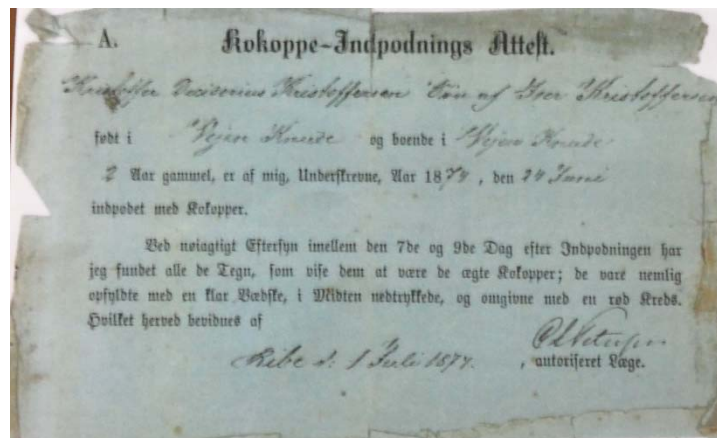 A. Kokoppe-Indpodnings Attest.
Kristoffer Desiderius Kristoffersen Søn af Iver Kristoffersen
født i Vejen Knude og boende i Vejen Knude
2 Aar gammel, er af mig, Underskrevne, Aar 1874, den 24 Juni
indpodet med Kokopper.
Ved nøiagtigt Eftersyn imellem den 7de og 9de Dag efter Indpodningen har
jeg fundet alle de Tegn, som vise dem at være de ægte Kokopper; de vare nemlig
opfyldte med en klar Vædske, i Midten nedtrykkede, og omgivne med en rød Kreds.
Hvilket herved bevidnes af
Ribe d. 1 Juli 1874. , autoriseret Læge.